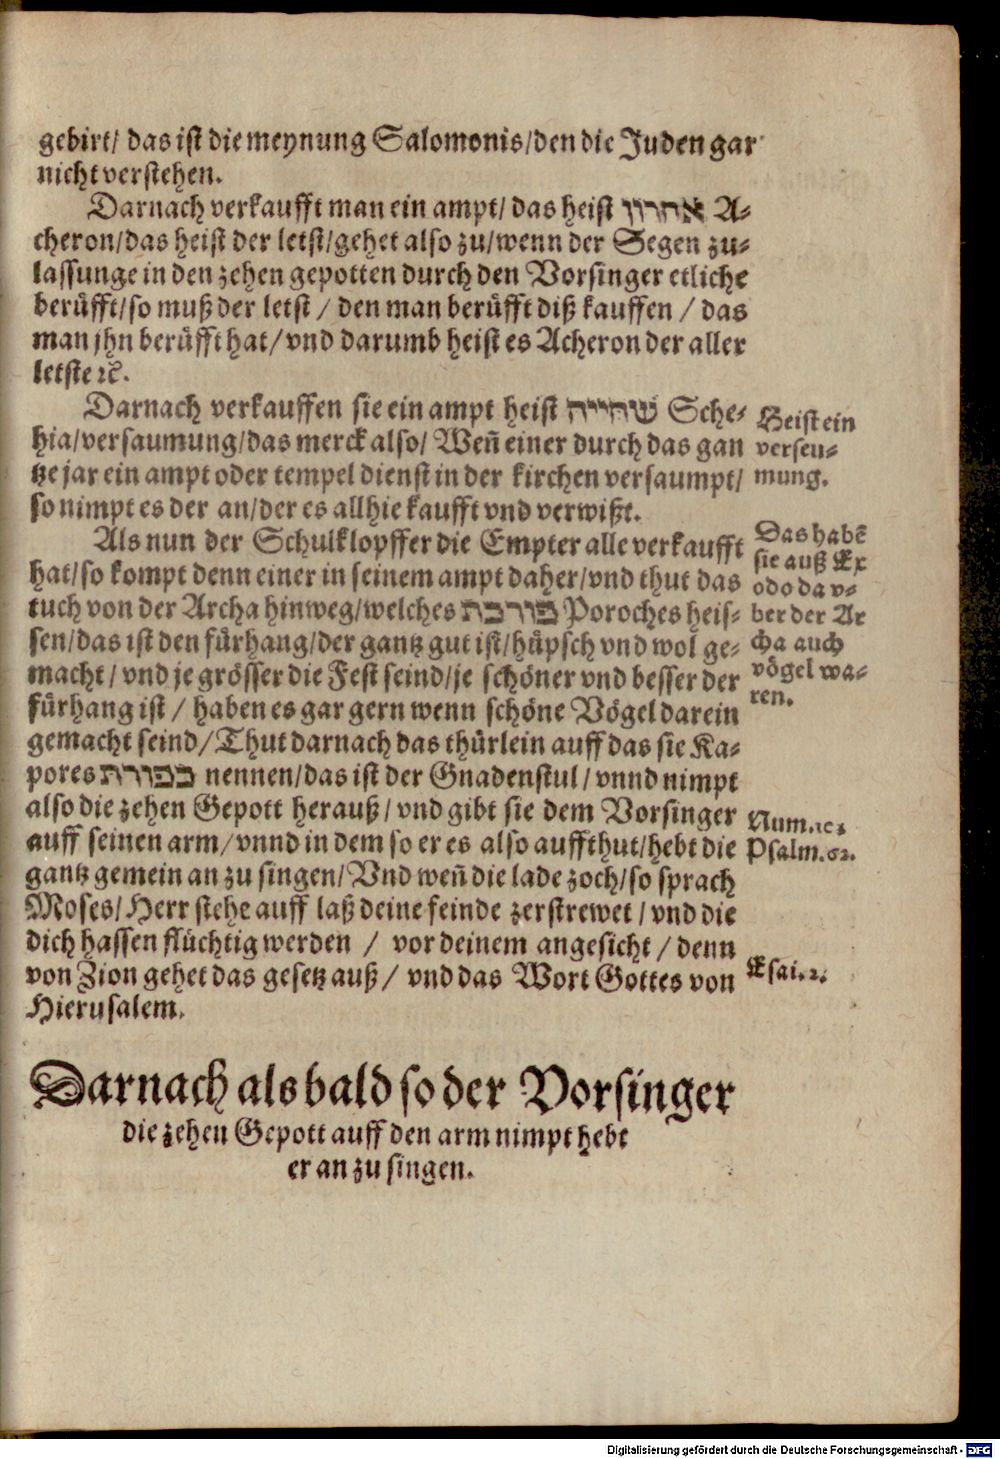 gebirt/ das ist die meynung Salomonis/den die Juden gar
nicht verstehen.
Darnach verkaufft man ein ampt/ das heist אחרון A-
cheron/das heist der letst/gehet also zu/wenn der Segen zu-
lassunge in den zehen gepotten durch den Vorsinger etliche
berüfft/so muß der letst / den man berüfft diß kauffen / das
man jhn berüfft hat/ vnd darumb heist es Acheron der aller
letste ꝛc.
Darnach verkauffen sie ein ampt heist שחייה Sche-
hia/versaumung/das merck also/ Weñ einer durch das gan
tze jar ein ampt oder tempel dienst in der kirchen versaumpt/
so nimpt es der an/der es allhie kaufft vnd verwißt.
Heist ein
verseu-
mung.
Als nun der Schulklopffer die Empter alle verkaufft
hat/so kompt denn einer in seinem ampt daher/vnd thut das
tuch von der Archa hinweg/welches פורכת Poroches heis-
sen/das ist den fürhang/der gantz gut ist/hüpsch vnd wol ge-
macht / vnd je grösser die Fest seind/je schöner vnd besser der
fürhang ist / haben es gar gern wenn schöne Vögel darein
gemacht seind/Thut darnach das thürlein auff das sie Ka-
pores כפורת nennen/das ist der Gnadenstul / vnnd nimpt
also die zehen Gepott herauß/ vnd gibt sie dem Vorsinger
auff seinen arm/ vnnd in dem so er es also auffthut/hebt die
gantz gemein an zu singen/ Vnd weñ die lade zoch/so sprach
Moses/ Herr stehe auff laß deine feinde zerstrewet / vnd die
dich hassen flüchtig werden / vor deinem angesicht / denn
von Zion gehet das gesetz auß / vnd das Wort Gottes von
Hierusalem.
Das habẽ
sie auß Ex
odo da v-
ber der Ar
cha auch
vögel wa-
ren.
Num.10.
Psalm.62.
Esai.2.
Darnach als bald so der Vorsinger
die zehen Gepott auff den arm nimpt hebt
er an zu singen.
Digitalisierung gefördert durch die Deutsche Forschungsgemeinschaft - DFG